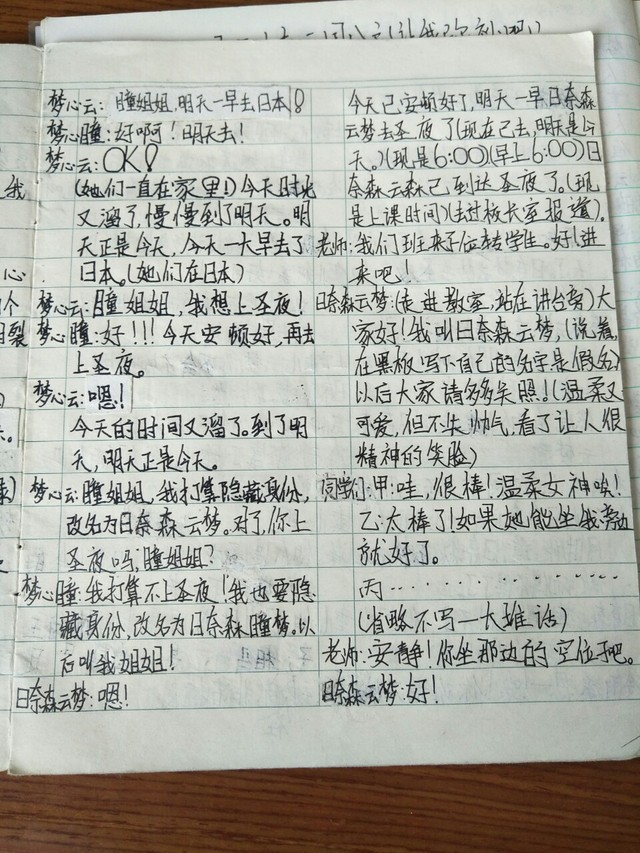 梦心云:瞳姐姐,明天一早去日本!
梦心瞳:好啊!明天去!
梦心云:OK!
(她们一直在家里)今天时光
又溜了,慢慢到了明天。明
天正是今天,今天一大早去了
日本。(她们在日本)
梦心云:瞳姐姐,我想上圣夜!
梦心瞳:好!!!今天安顿好,再去
上圣夜。
梦心云:嗯!
今天的时间又溜了。到了明
天,明天正是今天。
梦心云:瞳姐姐,我打算隐藏身份,
改名为日奈森云梦。对了,你上
圣夜吗,瞳姐姐?
梦心瞳:我打算不上圣夜!我也要隐
藏身份,改名为日奈森瞳梦。以
后叫我姐姐!
日奈森云梦:嗯!
今天已安顿好了,明天一早,日奈森
云梦去圣夜了(现在已去,明天是今
天。)(现是6:00)(早上6:00)日
奈森云森已到达圣夜了。(现
是上课时间)(去过校长室报道)。
老师:我们班来了位转学生。好!进
来吧!
日奈森云梦:(走进教室,站在讲台旁)大
家好!我叫日奈森云梦,(说着,
在黑板写下自己的名字是假名)
以后大家请多多关照!(温柔又
可爱,但不失帅气,看了让人很
精神的笑脸)
同学们:甲:哇,很棒!温柔女神唉!
乙:太棒了!如果她能坐我旁边
就好了。
丙………………
(省略不写一大堆话)
老师:安静!你坐那边的空位子吧。
日奈森云梦:好!